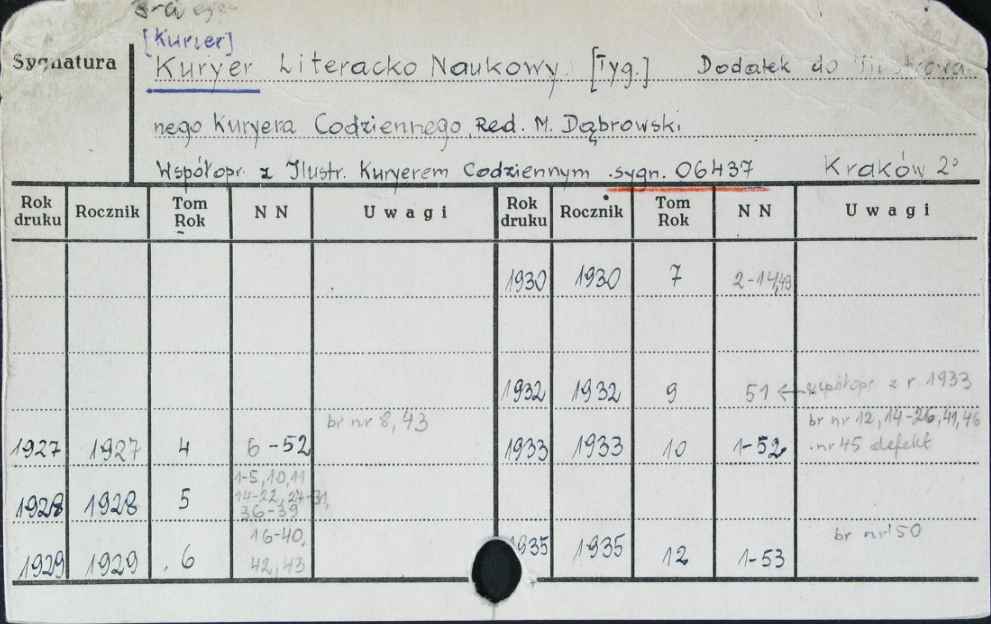 [Kurier]
Sygnatura Kuryer Literacko Naukowy [Tyg.] Dodatek do
nego Kuryera Codziennego, Red. M. Dąbrowski
Współopr. z Ilustr. Kuryerem Codziennym sygn. 06437 Kraków 2°
Rok druku Rocznik Tom Rok NN Uwagi Rok druku Rocznik Tom Rok NN Uwagi
1930 1930 7 2-14,49
1932 1932 9 51 ← współopr z r 1933
br nr 8,43 br nr 12, 14-26, 41, 46
1927 1927 4 6-52 1933 1933 10 1-52 nr 45 defekt
1-5, 10, 11
1928 1928 5 14-22, 27-31,
36-39
16-40, br nr 50
1929 1929 6 42, 43 1935 1935 12 1-53